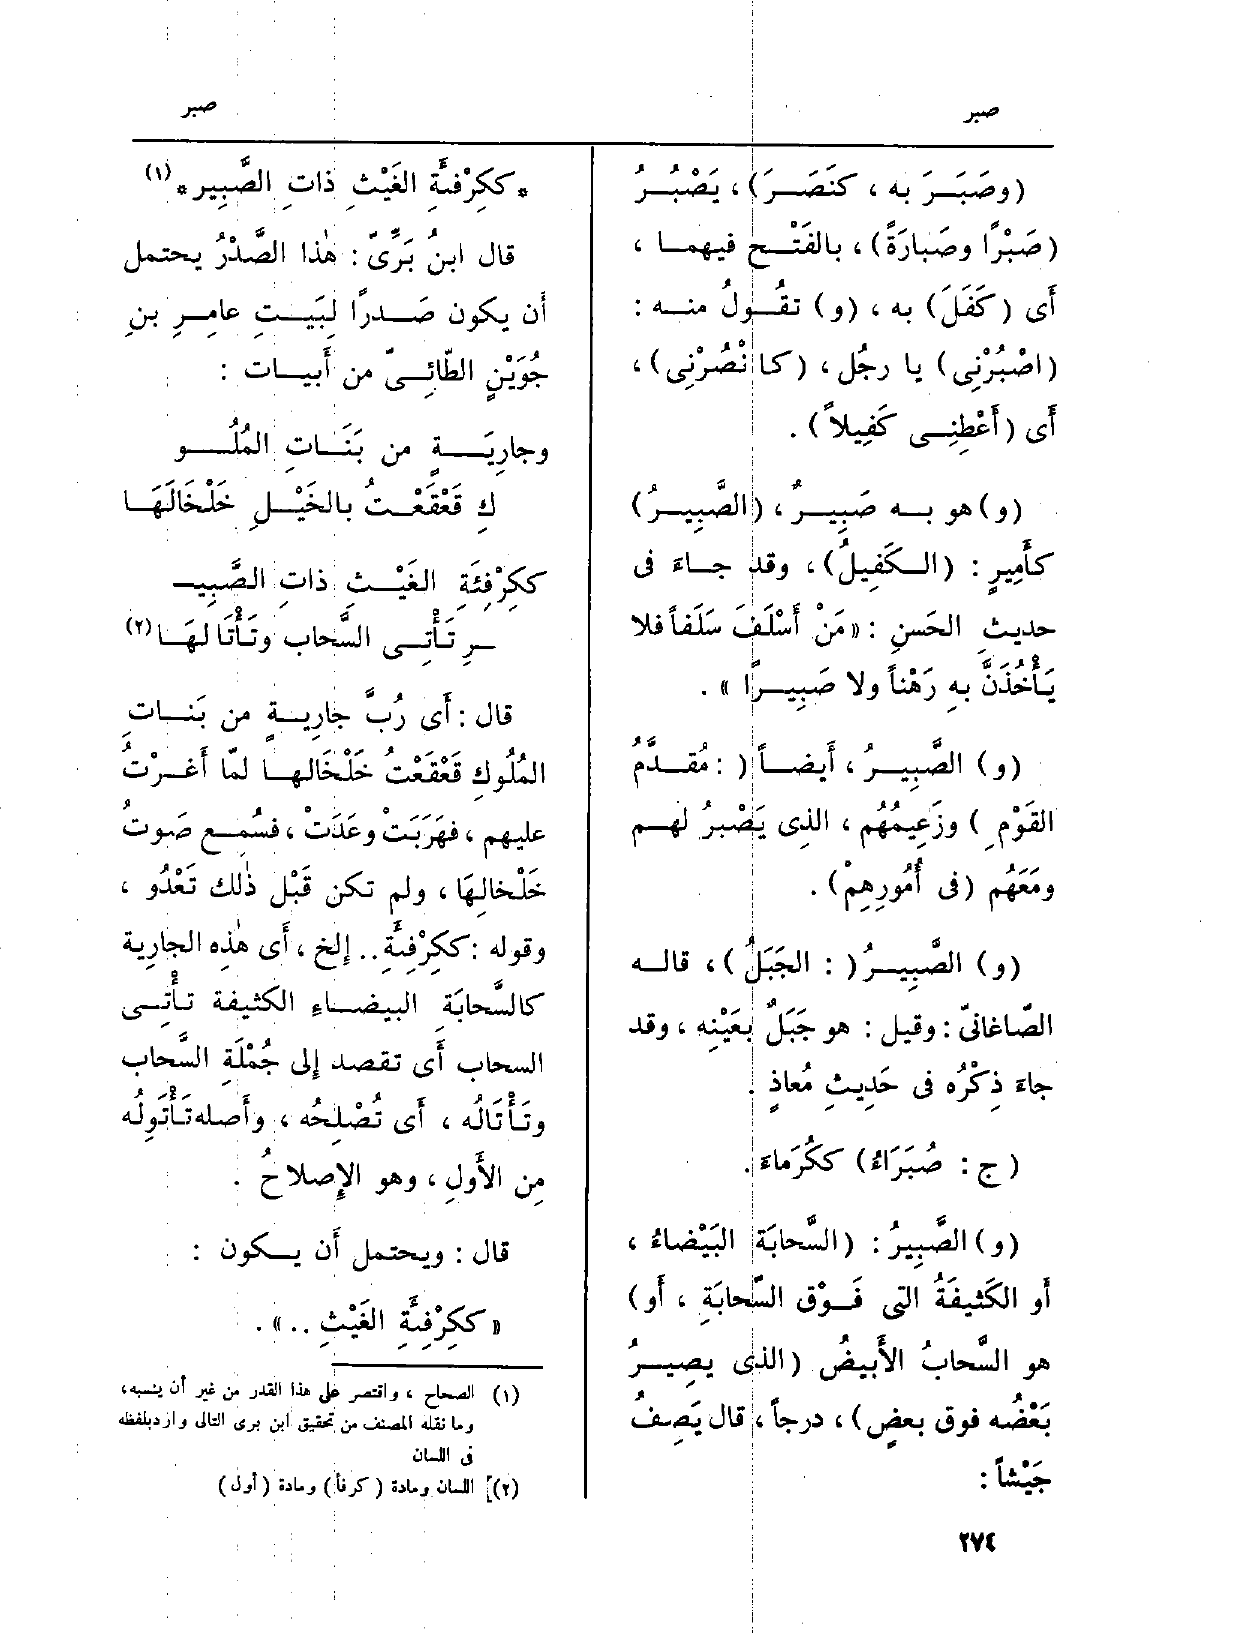 صبر
صبر
(وصَبَـرَ به ، كنَصَـرَ) ، يَصْبُـرُ
(صَبْرًا وصَبارَةً) ، بالفَتْـح فيهمـا ،
أَى (كَفَلَ) به ، (و) تقُـولُ منـه :
(اصْبُرْنِى) يا رجُل ، (كانْصُرْنِى) ،
أَى (أَعْطِنِـى كَفِيلاً) .
(و) هو بـه صَبِيـرٌ ، (الصَّبِيـرُ)
كأَمِيرٍ : (الـكَفِيلُ) ، وقد جـاءَ فى
حديثِ الحَسنِ : «مَنْ أَسْلَفَ سَلَفاً فلا
يَأْخُذَنَّ بهِ رَهْناً ولا صَبِيـرًا » .
(و) الصَّبِيـرُ ، أَيضـاً ( : مُقـدَّمُ
القَوْمِ ) وزَعِيمُهُم ، الذِى يَصْبرُ لهـم
ومَعَهُم (فى أُمُورِهِمْ) .
(و) الصَّبِيـرُ ( : الجَبَلُ ) ، قالـه
الصّاغانىّ : وقيل : هو جَبَلٌ بعَيْنِه ، وقد
جاءَ ذِكْرُه فى حَدِيثِ مُعاذٍ .
(ج : صُبَرَاءُ) ككُرَماءَ .
(و) الصَّبِيرُ : (السَّحابَة البَيْضاءُ ،
أَو الكَثِيفَةُ التى فَـوْق السَّحابَةِ ، أَو)
هو السَّحابُ الأَبيضُ (الذى يصِيـرُ
بَعْضُه فوق بعضٍ) ، درجاً ، قال يَصِفُ
جَيْشاً :
* ككِرْفِئَةِ الغَيْثِ ذاتِ الصَّبِيرِ * (١)
قال ابنُ بَرِّىّ : هٰذا الصَّدْرُ يحتمل
أَن يكون صَـدرًا لبَيْـتِ عامِـرِ بنِ
جُوَيْنٍ الطّائِـىّ من أَبيـات :
وجارِيَـــةٍ من بَنَـاتِ المُلُـــو
كِ قَعْقَعْـتُ بالخَيْـلِ خَلْخَالَهَـا
ككِرْفِئَةِ الغَيْـثِ ذاتِ الصَّبِيـ
ـرِ تَأْتِـى السَّحاب وتَأْتَالهَـا (٢)
قال : أَى رُبَّ جارِيـةٍ من بَنـاتِ
المُلُوك قَعْقَعْتُ خَلْخَالهـا لمّا أَغـرْتُ
عليهم ، فهَرَبَتْ وعَدَتْ ، فسُمـع صَوتُ
خَلْخالِهَا ، ولم تكن قَبْل ذٰلك تَعْدُو ،
وقوله : ككِرْفِئَةِ .. إلخ ، أَى هٰذه الجارية
كالسَّحابَة البيضـاءِ الكثيفة تـأْتـى
السحاب أَى تقصد إِلى جُمْلَةِ السَّحاب
وتَأْتَالُه ، أَى تُصْلِحُه ، وأَصله تَأْتَوِلُه
مِن الأَولِ ، وهو الإِصلاحُ .
قال : ويحتمل أَن يـكون :
« ككِرْفِئَةِ الغَيْثِ .. » .
(١) الصحاح ، واقتصر على هذا القدر من غير أن ينسبه،
وما نقله المصنف من تحقيق ابن برى التالى وارد بلفظه
فى اللسان
(٢)] اللسان ومادة (كرفأ) ومادة (أول)
٢٧٤